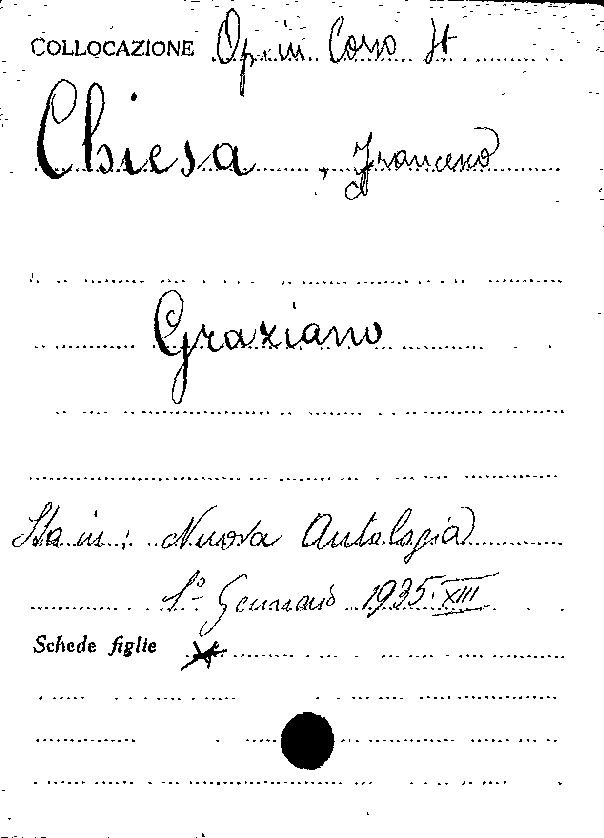 COLLOCAZIONE Op. in Corso It
Chiesa, Francesco
Graziano
Sta in: Nuova Antologia
1º Gennaio 1935.XIII
Schede figlie